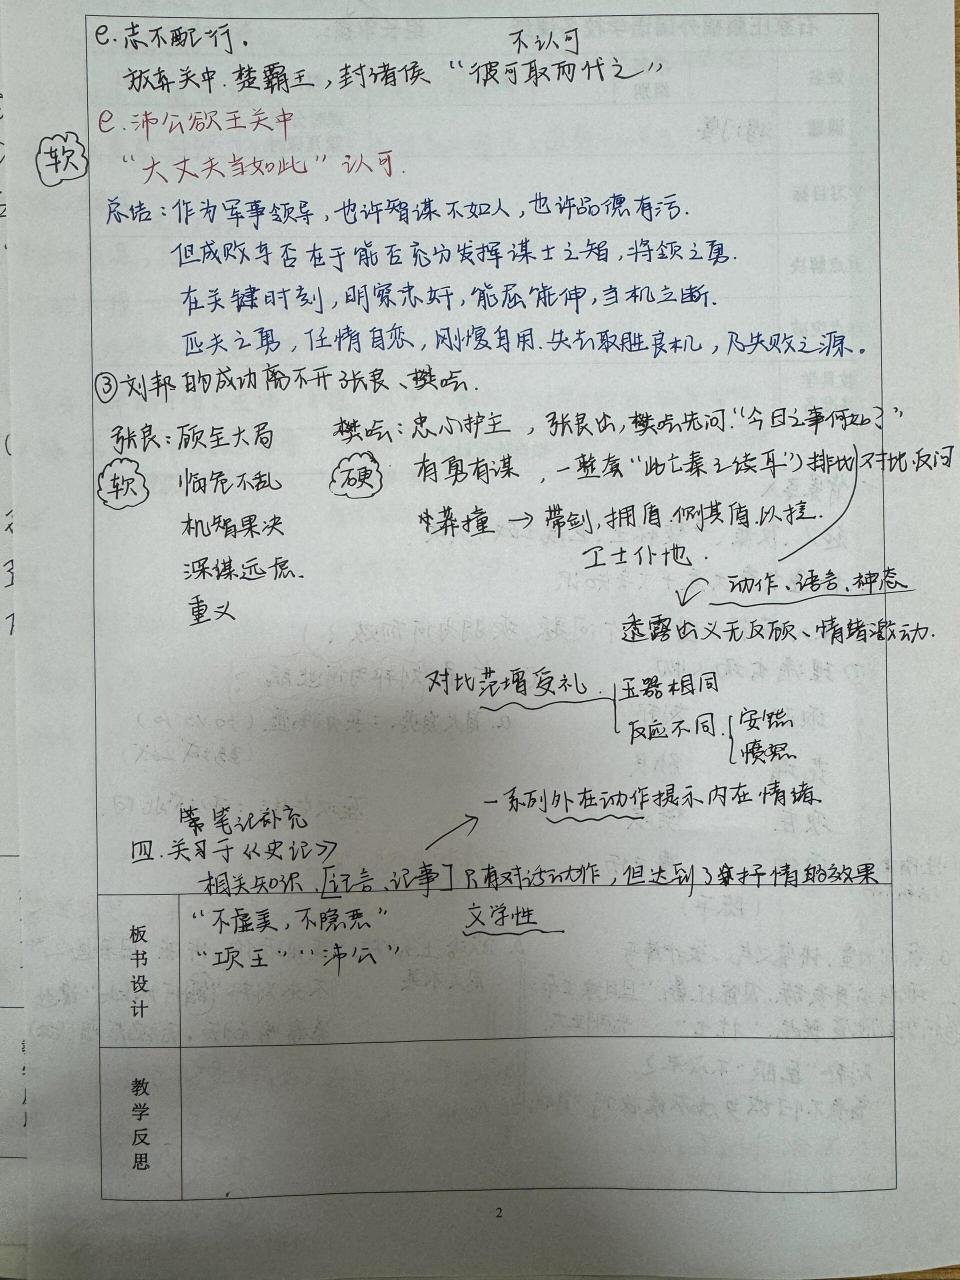 e. 志不配行。
不认可
放弃关中. 楚霸王，封诸侯 “彼可取而代之”
e. 沛公欲王关中
软
“大丈夫当如此” 认可.
总结：作为军事领导，也许智谋不如人，也许品德有污.
但成败与否在于能否充分发挥谋士之智，将领之勇.
在关键时刻，明察忠奸，能屈能伸，当机立断.
匹夫之勇，任情自恋，刚愎自用. 失去取胜良机，乃失败之源。
③刘邦的成功离不开张良、樊哙.
张良：顾全大局
软
临危不乱
机智果决
深谋远虑.
重义
樊哙：忠心护主，张良出，樊哙先问“今日之事何如？”
硬
有勇有谋，一整套“此亡秦之续耳”) 排比 对比 反问
莽撞 → 带剑，拥盾. 侧其盾以撞.
卫士仆地.
动作、语言、神态
透露出义无反顾、情绪激动.
对比范增受礼.
玉器相同
反应不同.
安然
愤怒
一系列外在动作提示内在情绪
笔记补充
四. 关于《史记》
相关知识. [记言、记事] 只有对话动作，但达到了抒情的效果
文学性
板书设计
“不虚美，不隐恶”
“项王”“沛公”
教学反思
2